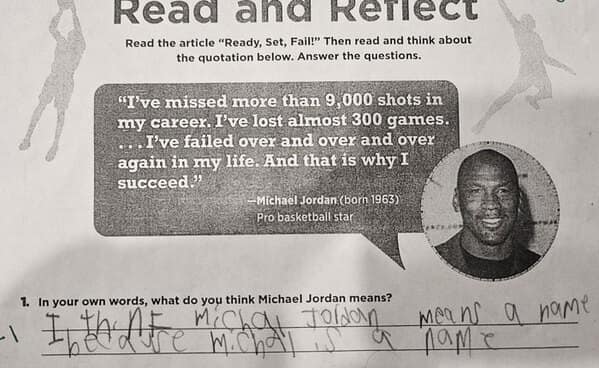 Read and Reflect
Read the article “Ready, Set, Fail!” Then read and think about
the quotation below. Answer the questions.
“I’ve missed more than 9,000 shots in
my career. I’ve lost almost 300 games.
. . . I’ve failed over and over and over
again in my life. And that is why I
succeed.”
—Michael Jordan (born 1963)
Pro basketball star
1. In your own words, what do you think Michael Jordan means?
-1
I thinK Michal Jordan means a name
because Michal is a name